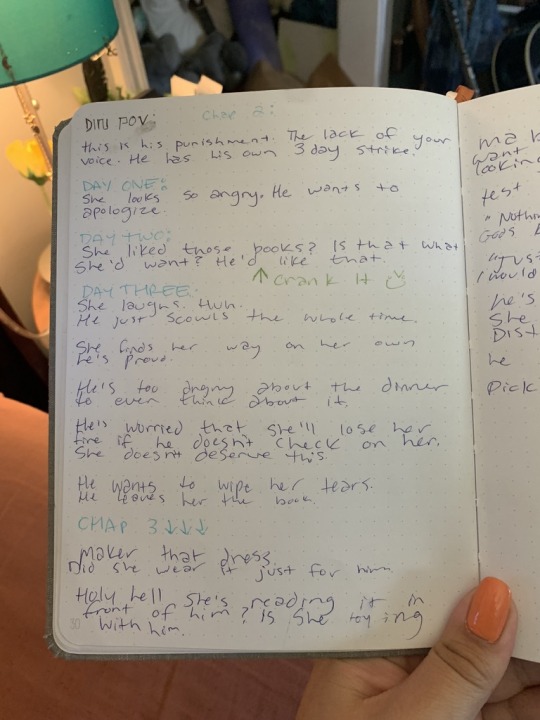 DIRU POV: Chap 2:
this is his punishment. The lack of your
voice. He has his own 3 day strike.
DAY ONE:
She looks so angry. He wants to
apologize.
DAY TWO:
She liked those books? Is that what
She'd want? He'd like that.
↑ Crank It
DAY THREE:
She laughs. Huh.
He just scowls the whole time.
She finds her way on her own
he's proud.
He's too angry about the dinner
to even think about it.
He's worried that she'll lose her
fire if he doesn't check on her.
She doesn't deserve this
He wants to wipe her tears.
He leaves her the book.
CHAP 3 ↓↓↓
Maker that dress.
Did she wear it just for him
Holy hell she's reading it in
front of him? Is she toying
with him.
50
ma
want
looking
fest
"Nothin
Gods
"Just
I would
he's
She
Dist
he
Dick